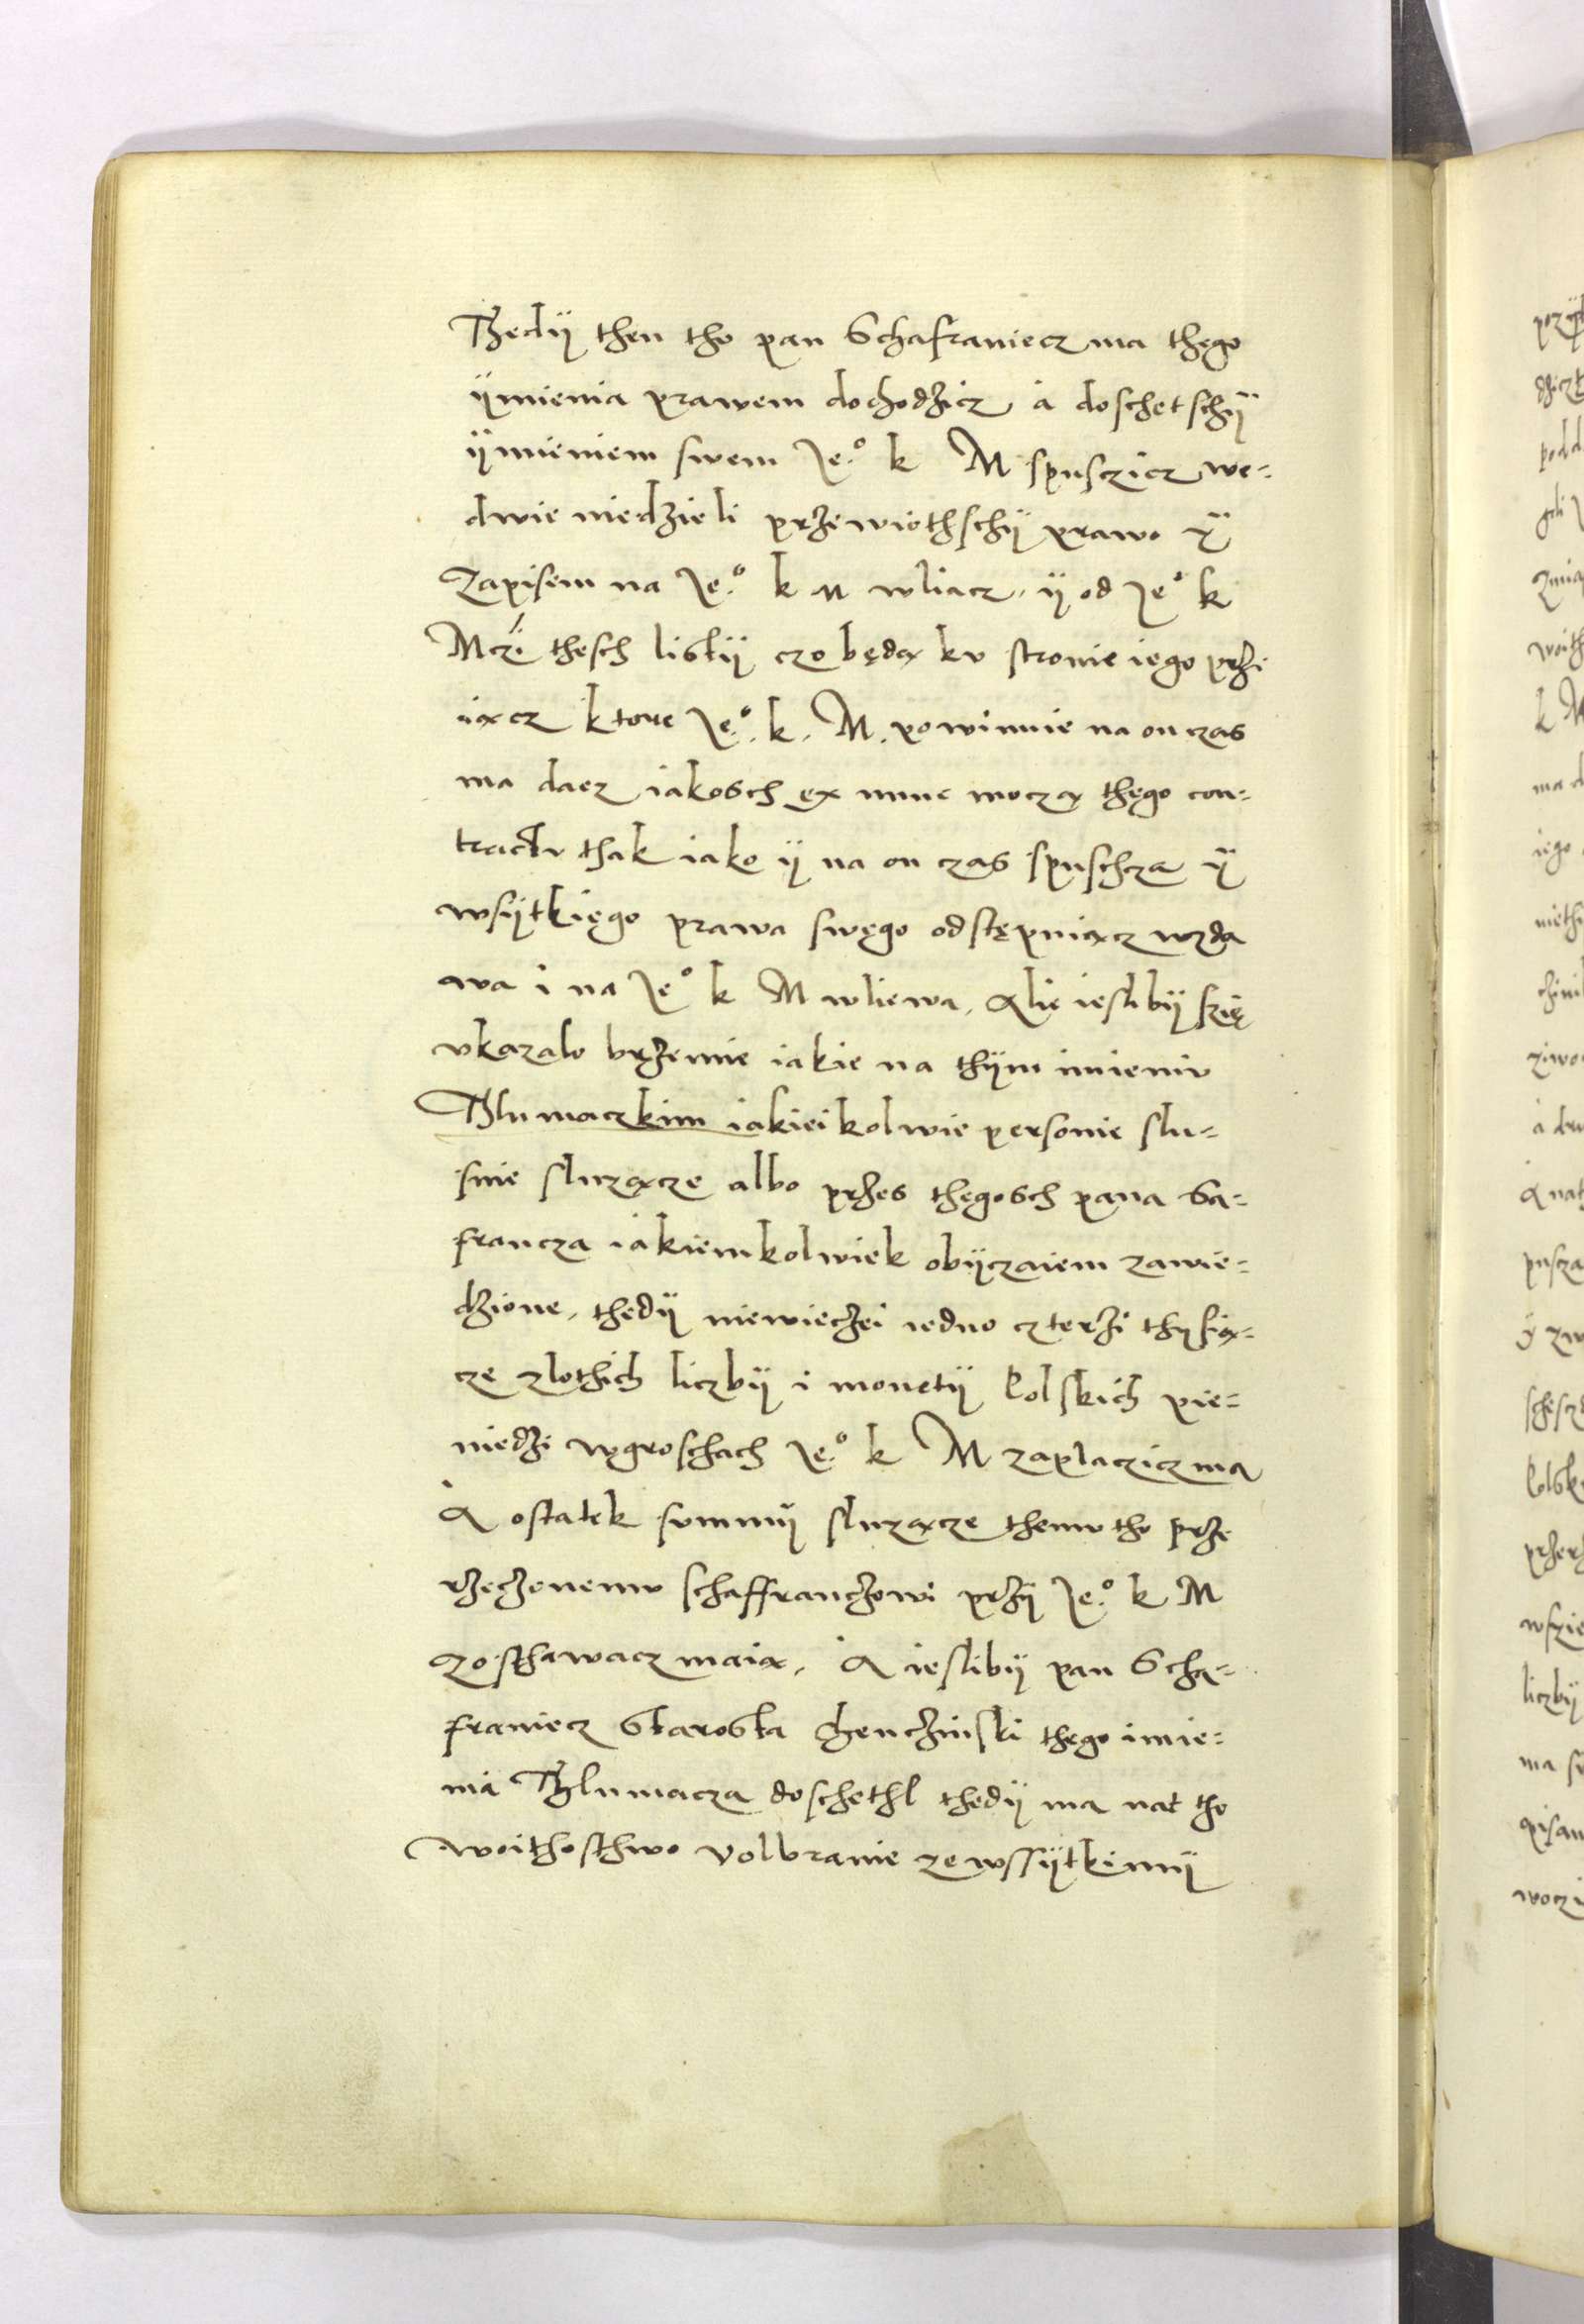 Thedÿ then tho pan Schafraniecz ma thego
ÿmienia prawem dochodzicz a doschetschÿ
ÿmieniem swem Je.° k M spusczicz we-
dwie niedzieli przewiothschÿ prawo ÿ
Zapisem na Je.° k M wliacz, ÿ od Je° k
Mczi thesch listÿ czo będą kv stronie iego przi
iącz ktore Je.°. k. M. powinnie na on czas
ma dacz iakosch ex nunc moczą thego con-
tractv thak iako ÿ na on czas spuschcza ÿ
wsÿtkięgo prawa swęgo odstępuiącz wzda
wa i na Je° k M wliewa, Alie ieslibÿ szię
vkazalo brzemie iakie na thÿm imieniv
Thlumaczkim iakieikolwie personie slu-
snie sluzącze albo przes thegosch pana Sa-
francza iakiemkolwiek obÿczaiem zawie-
dzione, thedÿ niewieczei iedno czterzi thysią-
cze zlothich liczbÿ i monetÿ Polskich pie-
niedzi wgroschach Je.° k M zaplaczicz ma
A ostatek svmmÿ sluzącze themv tho prze
rzeczonemv schaffranczowi przÿ Je.° k M
zosthawacz maią, A ieslibÿ pan Scha-
franiecz Starosta Chenczinski thego imie-
nia Thlumacza doschethl thedÿ ma nat tho
woithosthwo Volbranie zewssÿtkimÿ